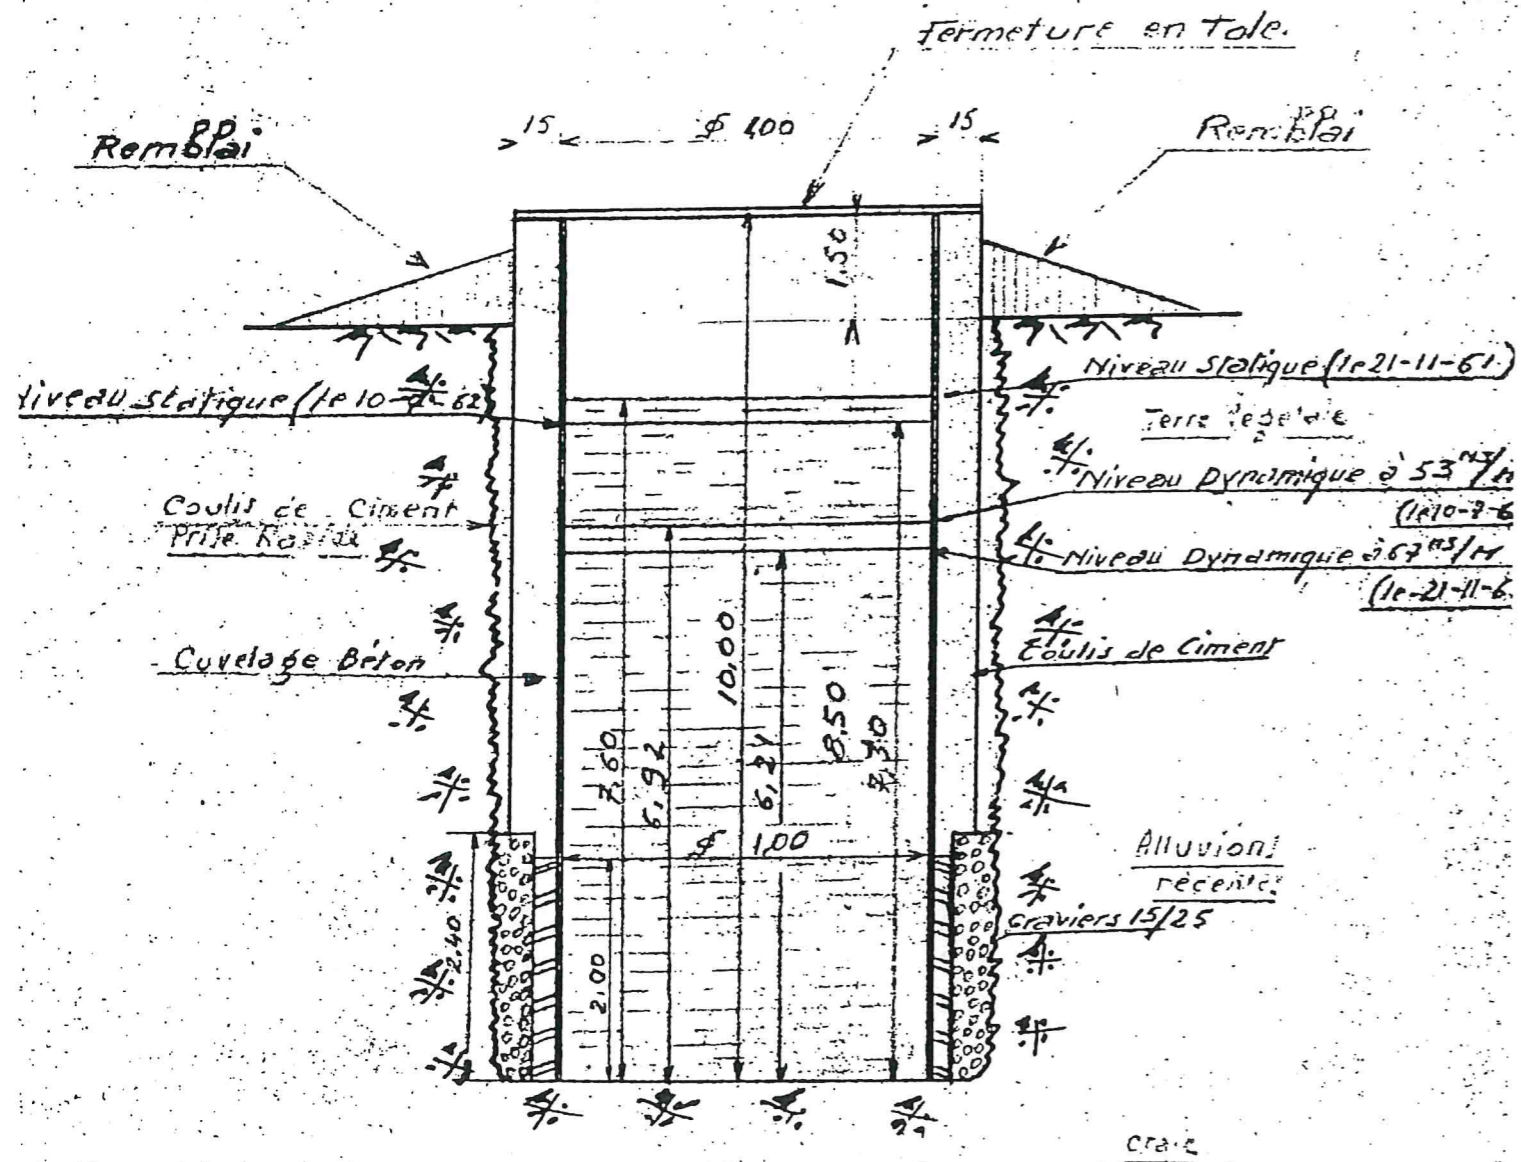 Fermeture en Tole.
15
$ 100
15
pp.
Remblai
pp.
Remblai
1.50
Niveau Statique (le 21-11-61)
iveau Statique (le 10-
62)
Terre
Niveau Dynamique à 53 M3/H
(le 10-7-6
Coulis de Ciment
Prise Rapide
Niveau Dynamique à 67 M3/H
(le-21-11-6
Coulis de Ciment
Cuvelage Béton
10,00
8.50
7.30
7.60
6.92
6.21
$ 1,00
Alluvions
récente
Graviers 15/25
2.40
2.00
craie